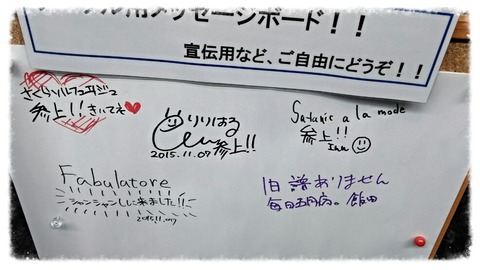 メッセージボード！！
宣伝用など、ご自由にどうぞ！！
さくらソルフェージュ
参上!! きいてネ♥
りりはる
参上!!
2015.11.07
Satanic a la mode
参上!!
Fabulatore
シャンシャンしに来ました!!
2015.11.07
旧譜ありません
毎日五月病。飯田